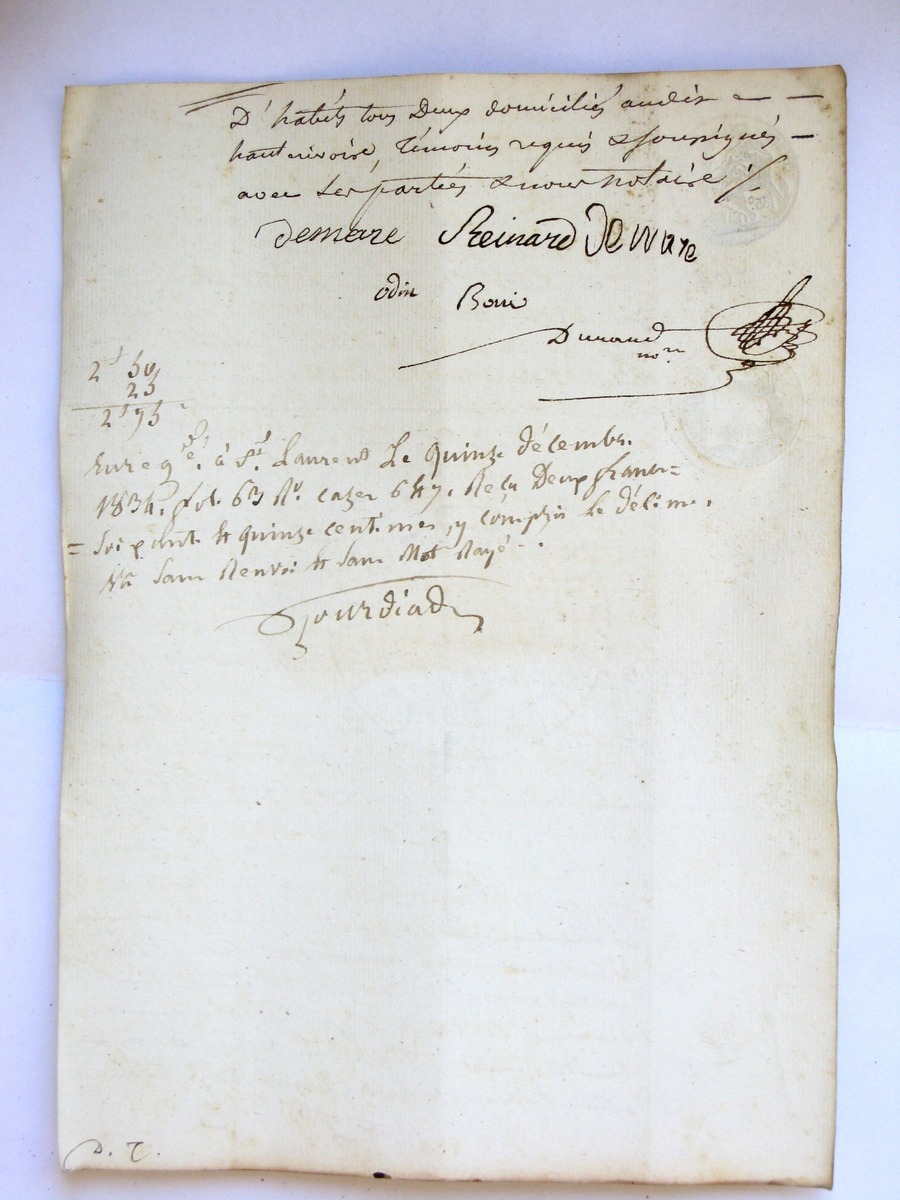 D'habits tous Deux domiciliés audit
hauterivoire, témoins requis & soussignés
avec les parties & nous notaire
demare Reinard Demare
odin Boni
Durand
no.re
2f 50
25
2f 75
Enregé. à St. Laurent Le quinze décembre
1834. fol. 63 Ro. cazes 6 &7. Reçu Deux francs
= soixante & quinze centimes, y compris le décime.
sans Renvoi & sans Mot Rayé
Gourdiad
D. T.